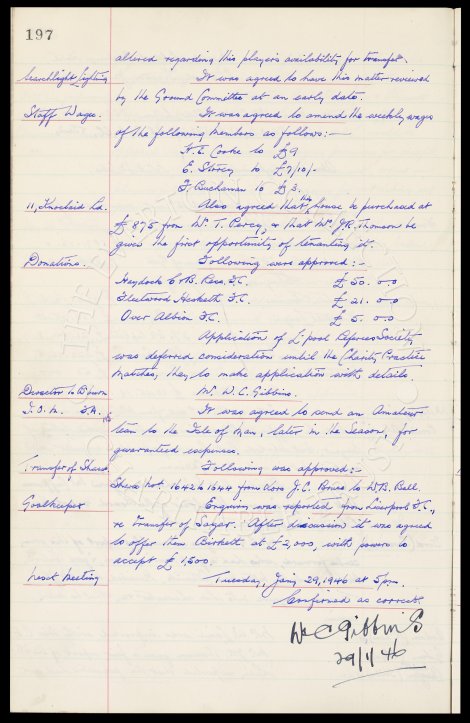 197
altered regarding this players availability for transfer.
Searchlight Lighting It was agreed to have this matter reviewed
by the Ground Committee at an early date.
Staff Wages. It was agreed to amend the weekly wages
of the following members as follows:-
H.E. Cooke to £9
E. Storey to £7/10/-
F. Buchanan to £3.
11, Knoclaid Rd. Also agreed that the house be purchased at
£875 from Mr. T. Percy, & that Mr. J.R. Thomson be
given the first opportunity of tenanting it.
Donations. Following were approved:-
Haydock C & B. Recs. F.C. £50.0.0
Fleetwood Hesketh F.C. £21.0.0
Over Albion F.C. £5.0.0
Application of L'pool Referees Society
was deferred consideration until the Charity Practice
Matches, they to make application with details.
Director to B'ham Mr. W.C. Gibbins.
I.O.M. F.A. It was agreed to send an Amateur
team to the Isle of Man, later in the Season, for
guaranteed expenses.
Transfer of Shares Following was approved:-
Share Nos. 1642 & 1644 from J.C. to W.B. Ball
Goalkeeper Enquiry was reported from Liverpool F.C.,
re Transfer of Sagar. After discussion it was agreed
to offer them Birkett at £2,000, with powers to
accept £1,500.
Next Meeting Tuesday, Jany 29, 1946 at 5pm.
Confirmed as correct.
W C Gibbins
29/1/46